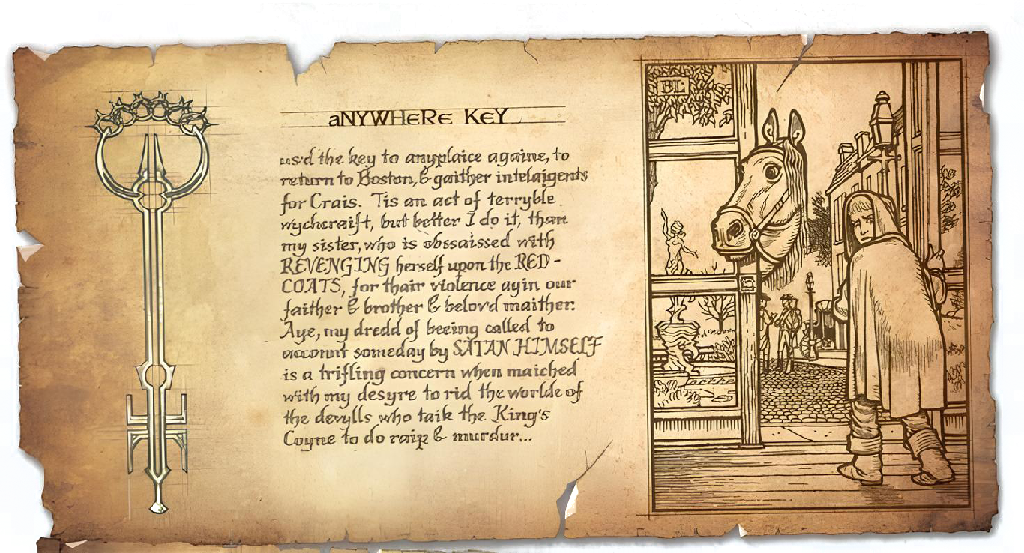 aNYWHeRe KeY
BL
usd the key to anyplaice againe, to
return to Boston, & gaither intelaigents
for Crais. Tis an act of terryble
wychcraift, but better I do it, than
my sister, who is obssaissed with
REVENGING herself upon the RED-
COATS, for thair violence agin our
faither & brother & belovd maither.
Aye, my dredd of beeing called to
account someday by SATAN HIMSELF
is a trifling concern when maiched
with my desyre to rid the worlde of
the devylls who taik the King's
Coyne to do raip & murdur...